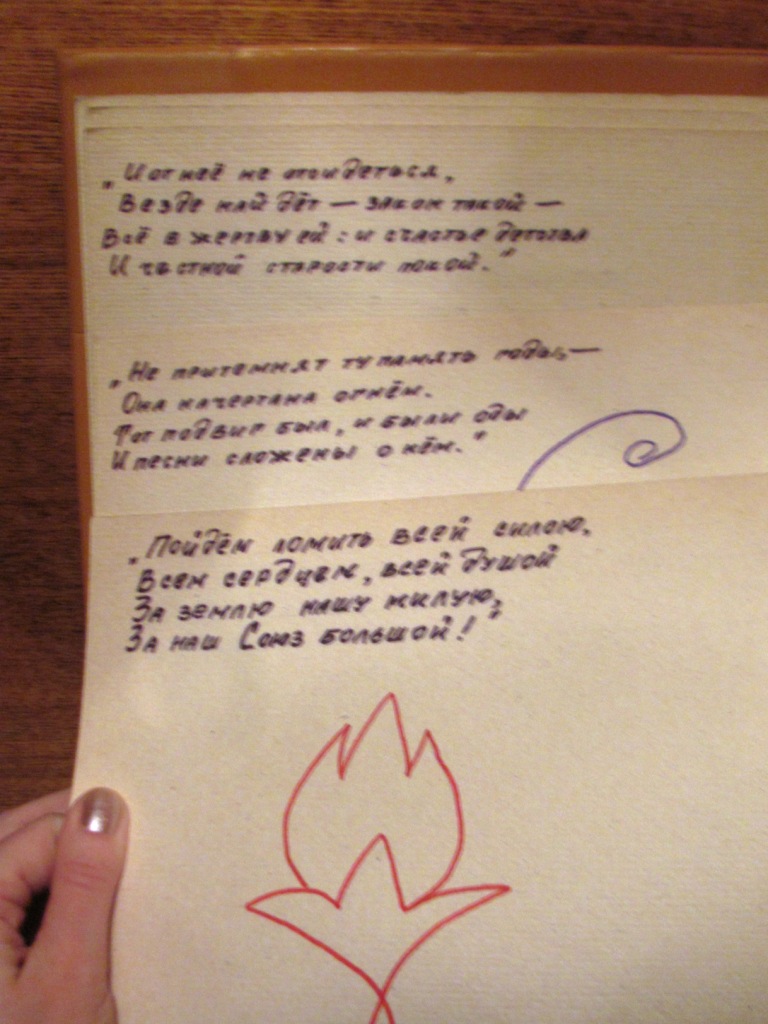 „И от неё не отойдеться,
Везде найдёт — закон такой —
Всё в жертву ей: и счастье детства
И честной старости покой."
„Не притемнят ту память годы, —
Она начертана огнём.
Тот подвиг был, и были оды
И песни сложены о нём."
„Пойдём ломить всей силою,
Всем сердцем, всей душой
За землю нашу милую,
За наш Союз большой!"